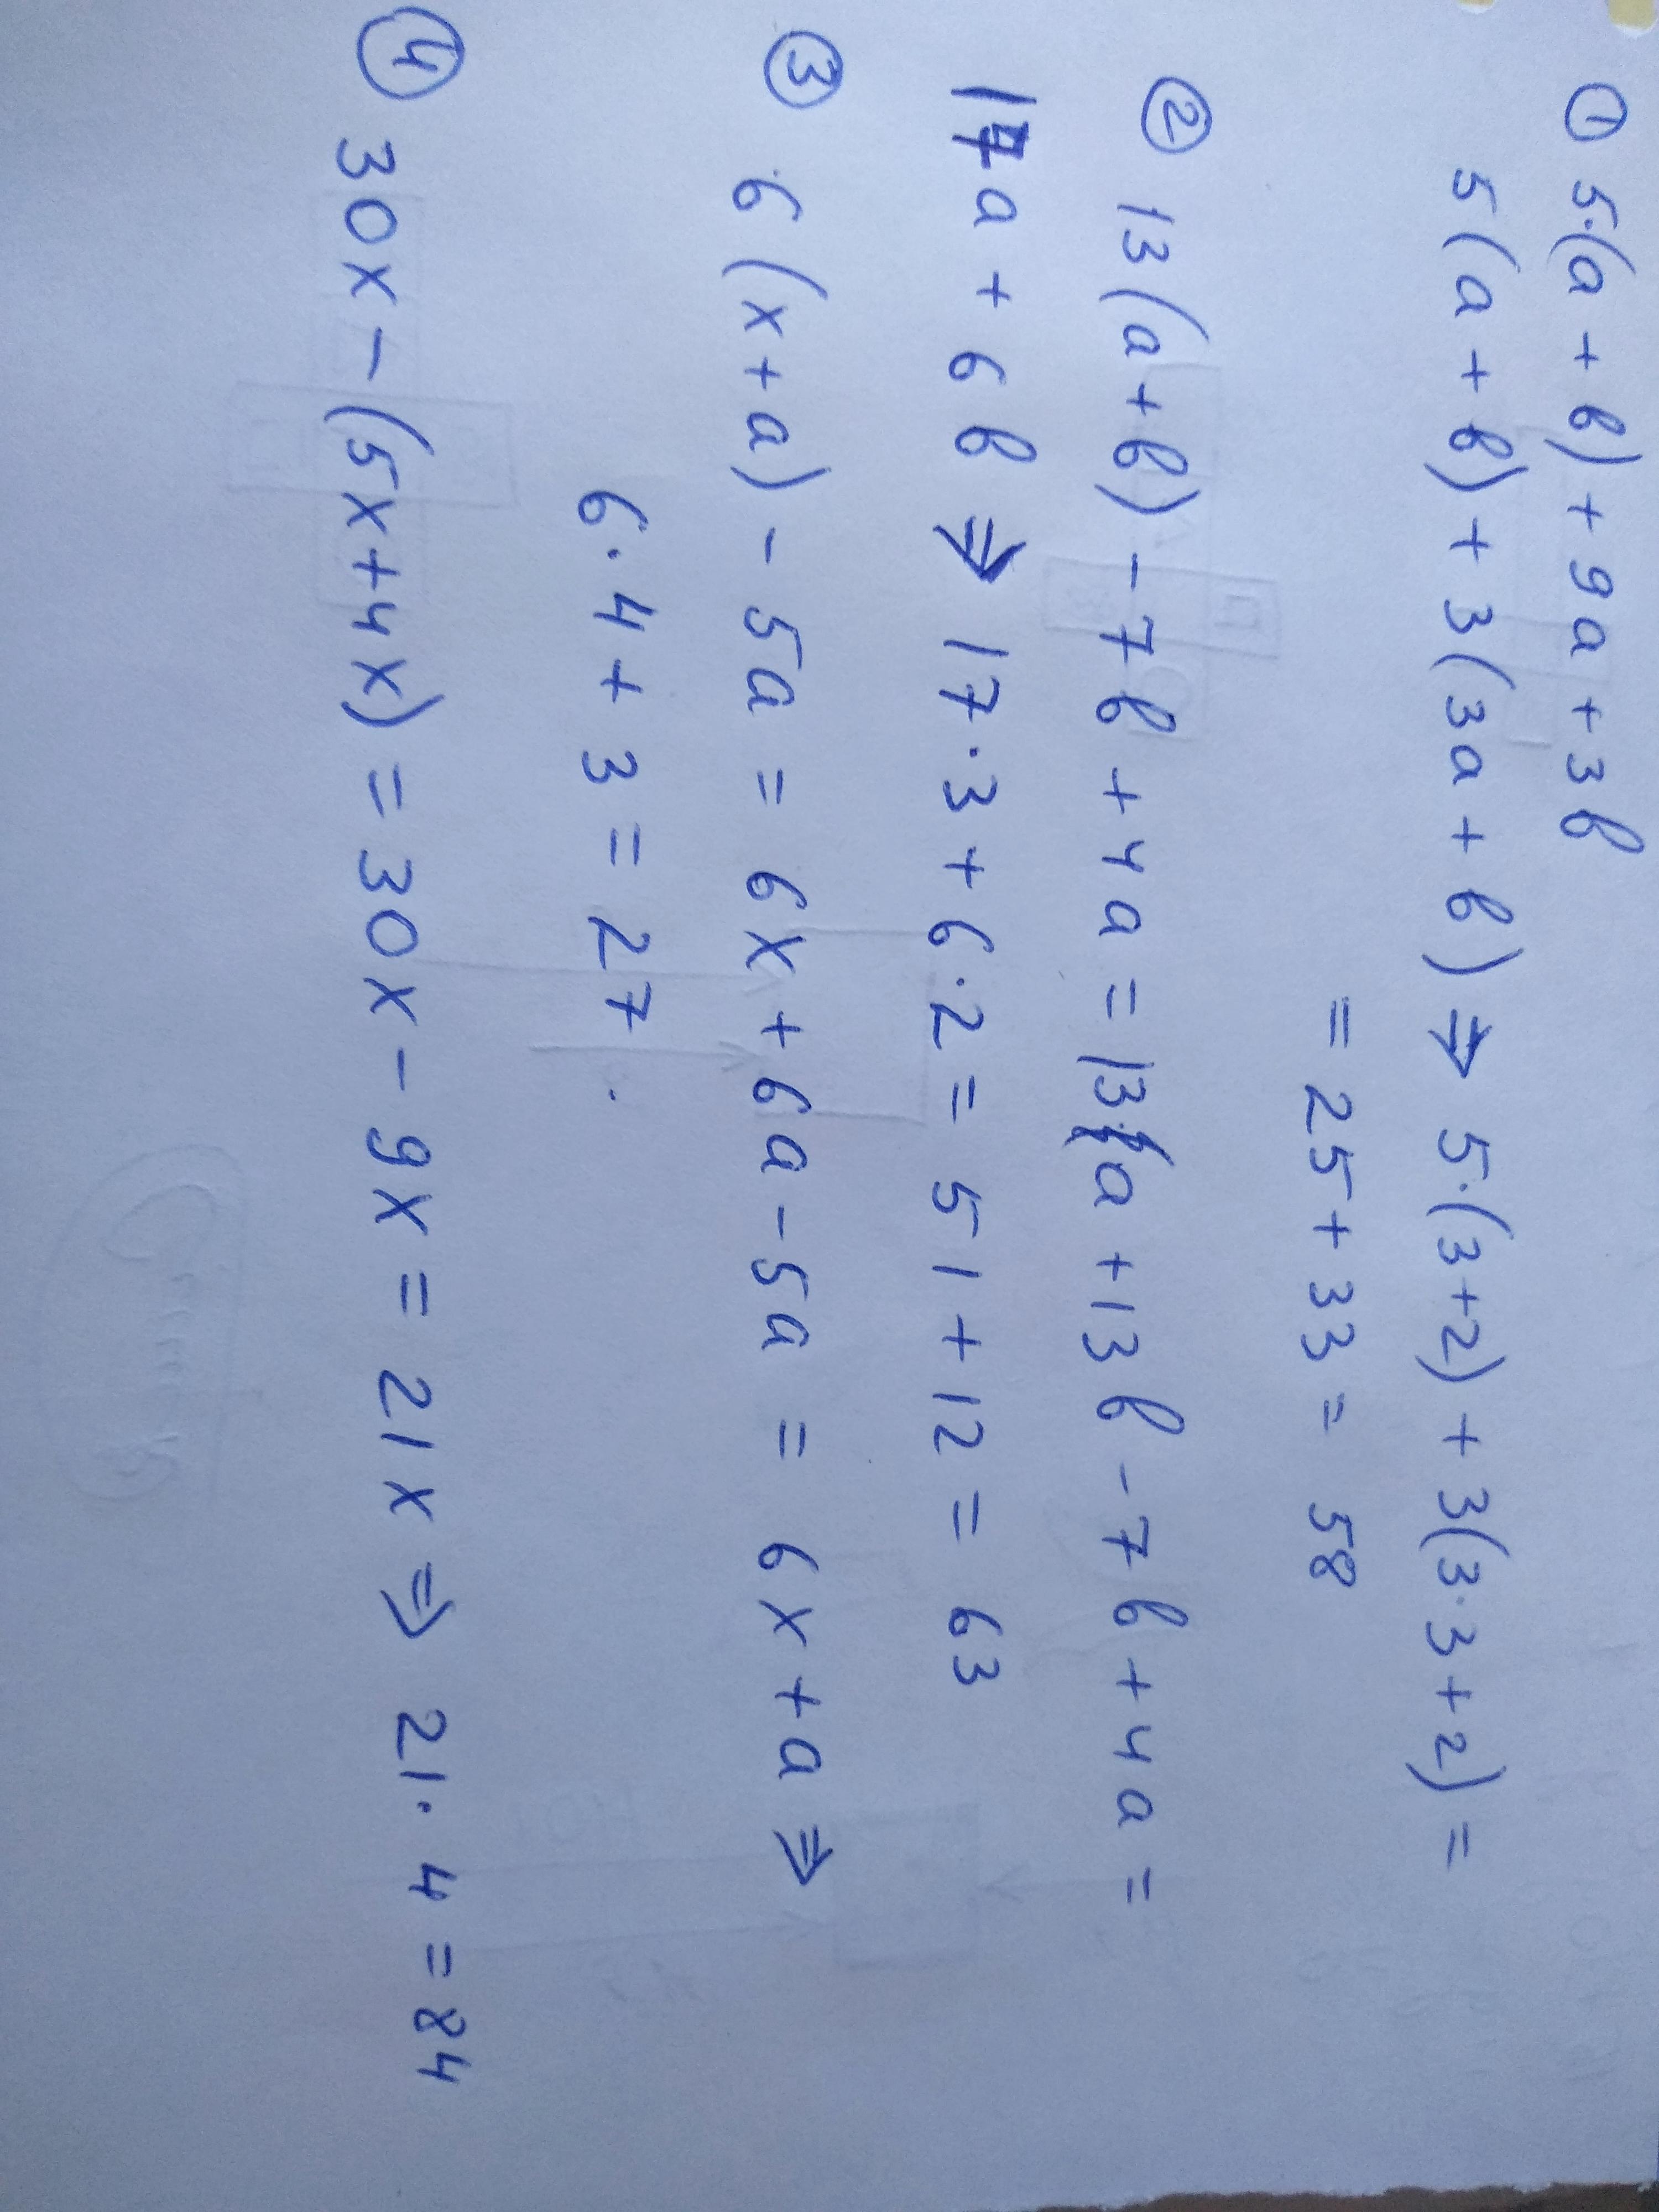 ① 5·(a + b) + 9a + 3b
5(a + b) + 3(3a + b) ⇒ 5·(3+2) + 3(3·3+2) =
= 25 + 33 = 58
② 13(a+b) - 7b + 4a = 13a + 13b - 7b + 4a =
17a + 6b ⇒ 17·3 + 6·2 = 51 + 12 = 63
③ 6(x+a) - 5a = 6x + 6a - 5a = 6x + a ⇒
6·4 + 3 = 27.
④ 30x - (5x+4x) = 30x - 9x = 21x ⇒ 21·4 = 84